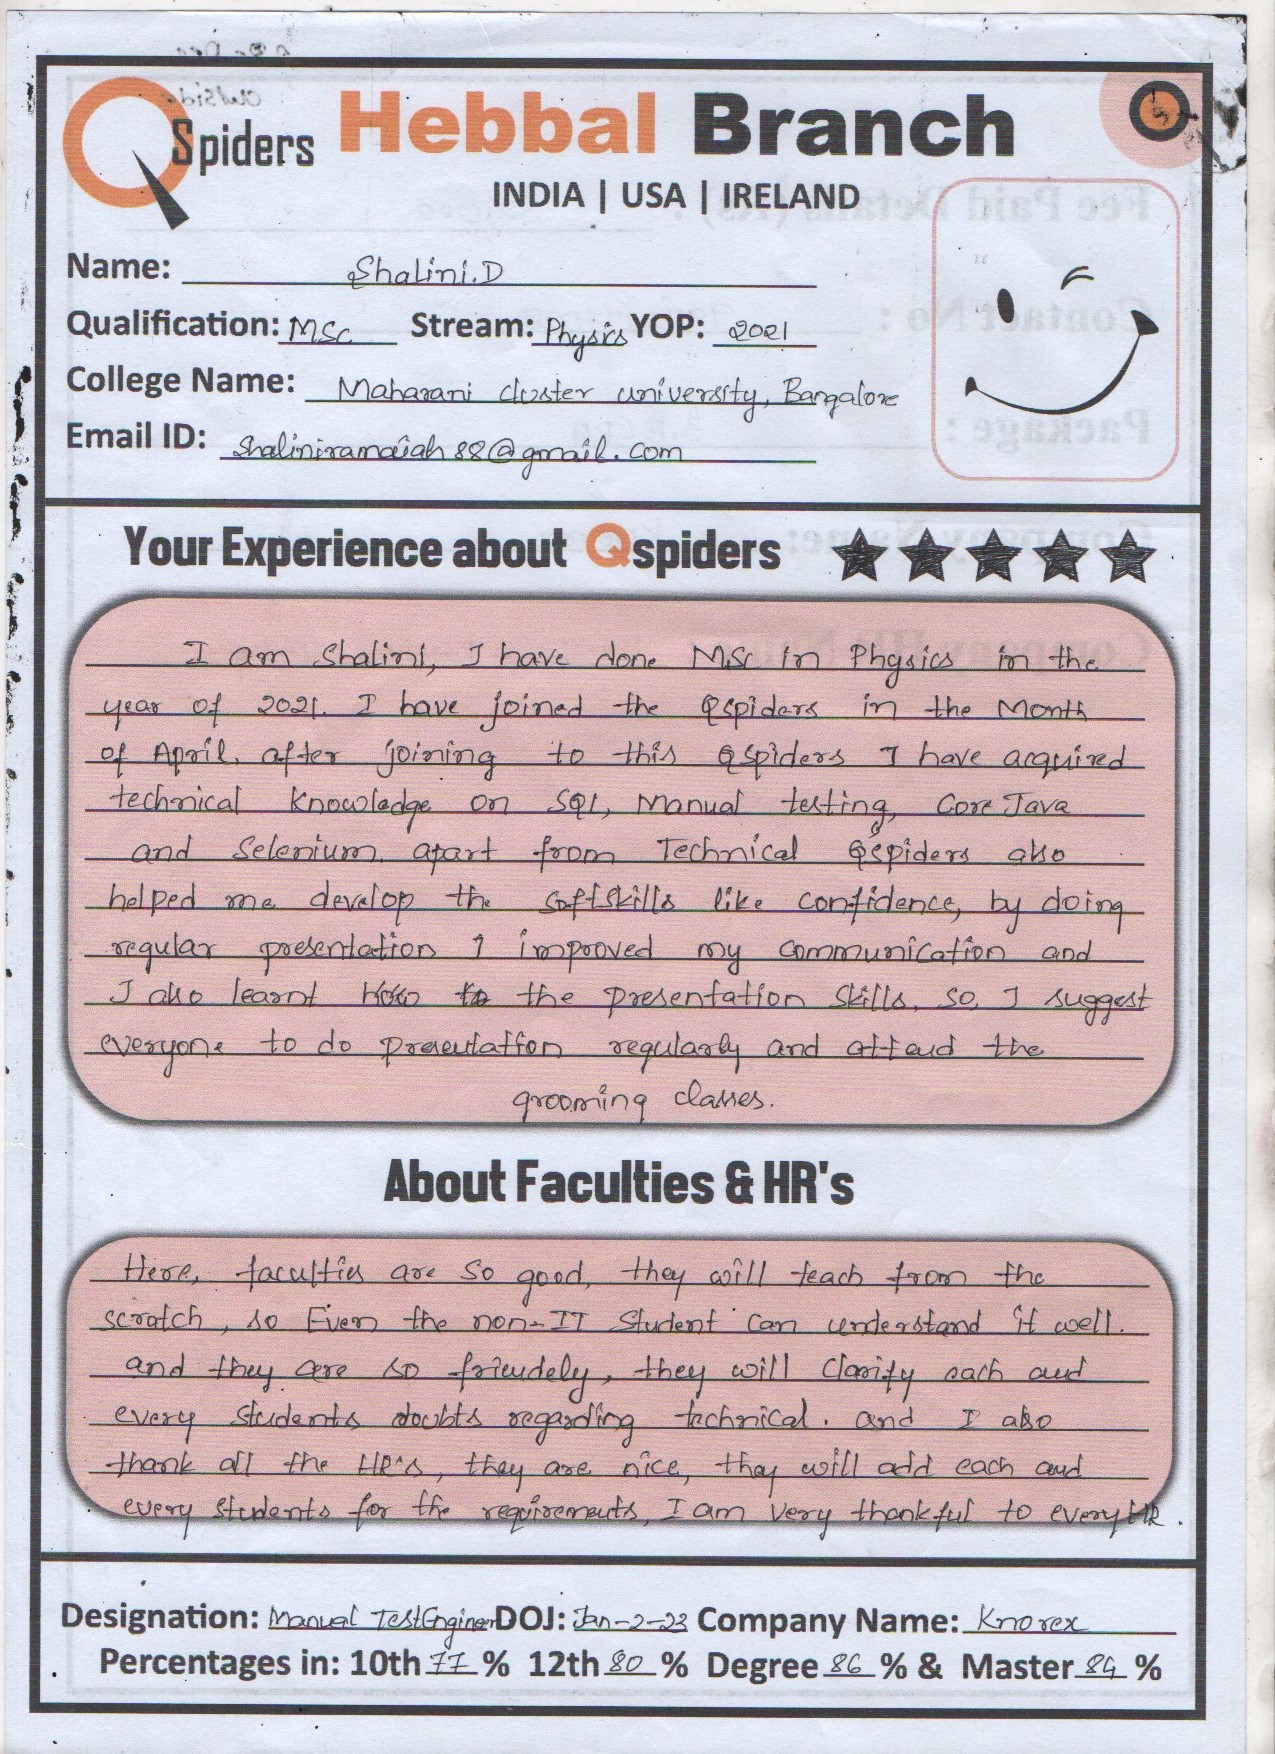 QSpiders Hebbal Branch
INDIA | USA | IRELAND
Name: Shalini.D
Qualification: MSc Stream: Physics YOP: 2021
College Name: Maharani cluster university, Bangalore
Email ID: shaliniramaiah88@gmail.com
Your Experience about Qspiders
I am Shalini, I have done MSc in Physics in the
year of 2021. I have joined the Qspiders in the Month
of April. after joining to this Qspiders I have acquired
technical knowledge on SQL, Manual testing, Core Java
and Selenium. apart from Technical Qspiders also
helped me develop the softskills like confidence, by doing
regular presentation I improved my communication and
I also learnt how to the presentation skills. so, I suggest
everyone to do presentation regularly and attend the
grooming classes.
About Faculties & HR's
Here, faculties are so good, they will teach from the
scratch, so Even the non-IT Student can understand it well.
and they are so friendely, they will clarify each and
every students doubts regarding technical. and I also
thank all the HR's, they are nice, they will add each and
every students for the requirements, I am very thankful to every HR.
Designation: Manual Test Engineer DOJ: Jan-2-23 Company Name: Knorex
Percentages in: 10th 77 % 12th 80 % Degree 86 % & Master 84 %